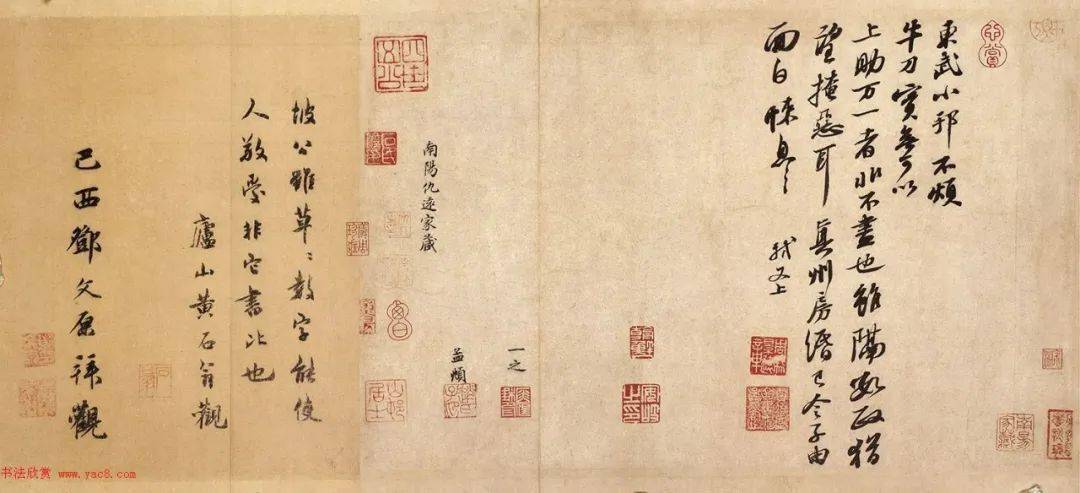 東武小邦不煩
牛刀實無可以
上助万一者非不盡也雖隔數政猶
望掩惡耳真州房緡已令子由
面白悚息〻
軾又上
南陽仇遠家藏
一之
孟頫
坡公雖草〻數字能使
人敬愛非它書比也
廬山黄石翁觀
己酉鄧文原拜觀
书法欣赏 www.yac8.com